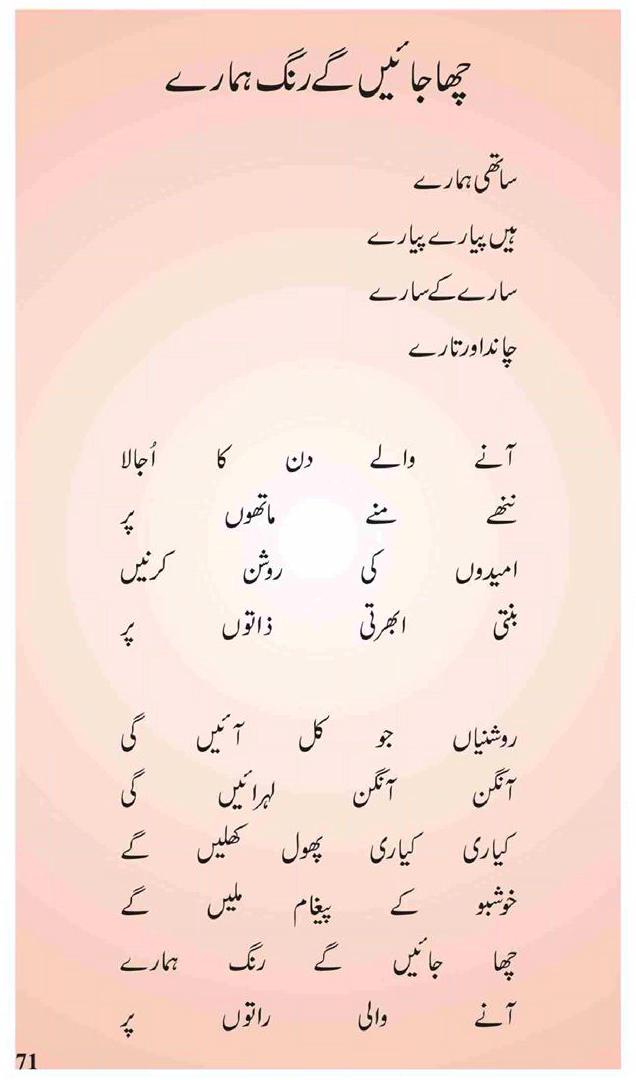 چھا جائیں گے رنگ ہمارے
ساتھی ہمارے
ہیں پیارے پیارے
سارے کے سارے
چاند اور تارے
آنے والے دن کا اُجالا
ننھے منے ماتھوں پر
امیدوں کی روشن کرنیں
بنتی ابھرتی ذاتوں پر
روشنیاں جو کل آئیں گی
آنگن آنگن لہرائیں گی
کیاری کیاری پھول کھلیں گے
خوشبو کے پیغام ملیں گے
چھا جائیں گے رنگ ہمارے
آنے والی راتوں پر
71